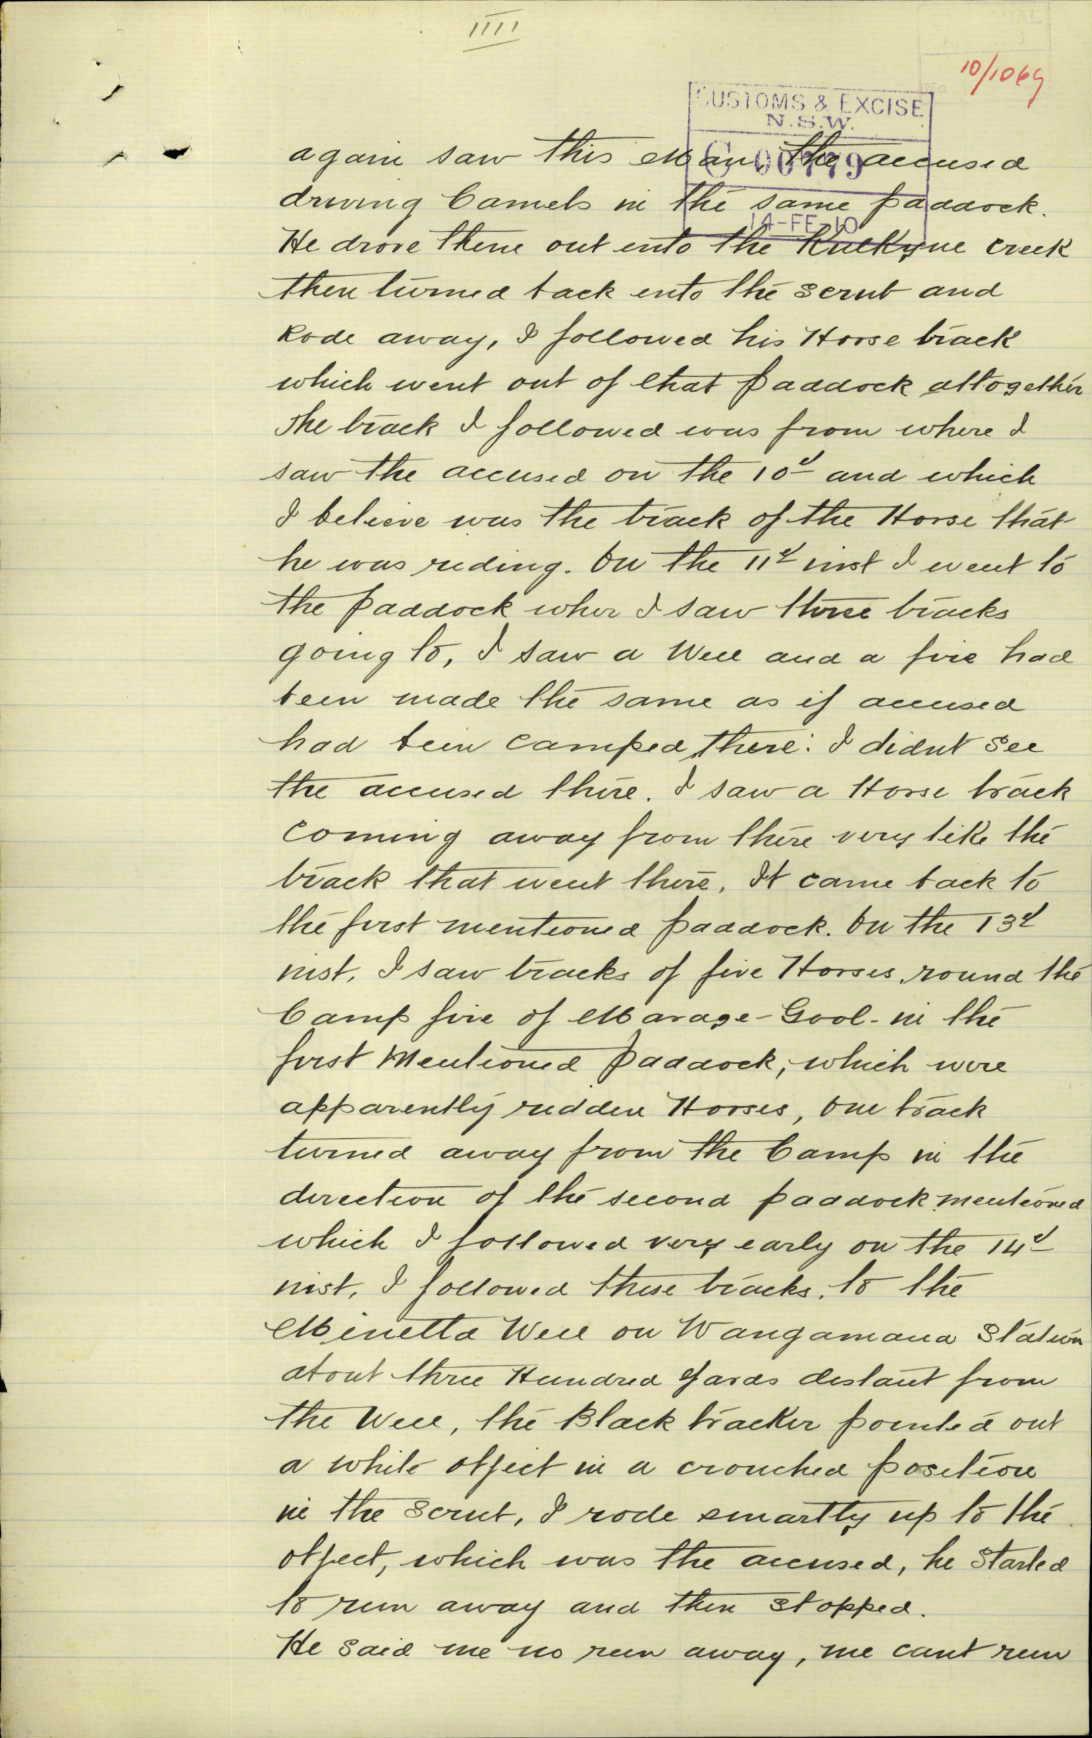 IIII
10/1069
CUSTOMS & EXCISE
N.S.W.
G 00779
14-FE-10
again saw this Man the accused
driving Camels in the same paddock.
He drove them out into the Kulkyne creek
then turned back into the scrub and
Rode away, I followed his Horse track
which went out of that paddock altogether
The track I followed was from where I
saw the accused on the 10th and which
I believe was the track of the Horse that
he was riding. On the 11th inst I went to
the paddock wher I saw three tracks
going to, I saw a Well and a fire had
been made the same as if accused
had been camped there: I didnt see
the accused there. I saw a Horse track
coming away from there very like the
track that went there. It came back to
the first mentioned paddock. On the 13th
inst. I saw tracks of five Horses round the
Camp fire of Marage-Gool- in the
first Mentioned paddock, which were
apparently ridden Horses, One track
turned away from the Camp in the
direction of the second paddock mentioned
which I followed very early on the 14th
inst. I followed these tracks. to the
Minetta Well on Wangamana Station
about three Hundred Yards distant from
the Well, the Black tracker pointed out
a white object in a crouched position
in the scrub, I rode smartly up to the
object, which was the accused, he started
to run away and then stopped.
He said me no run away, me cant run